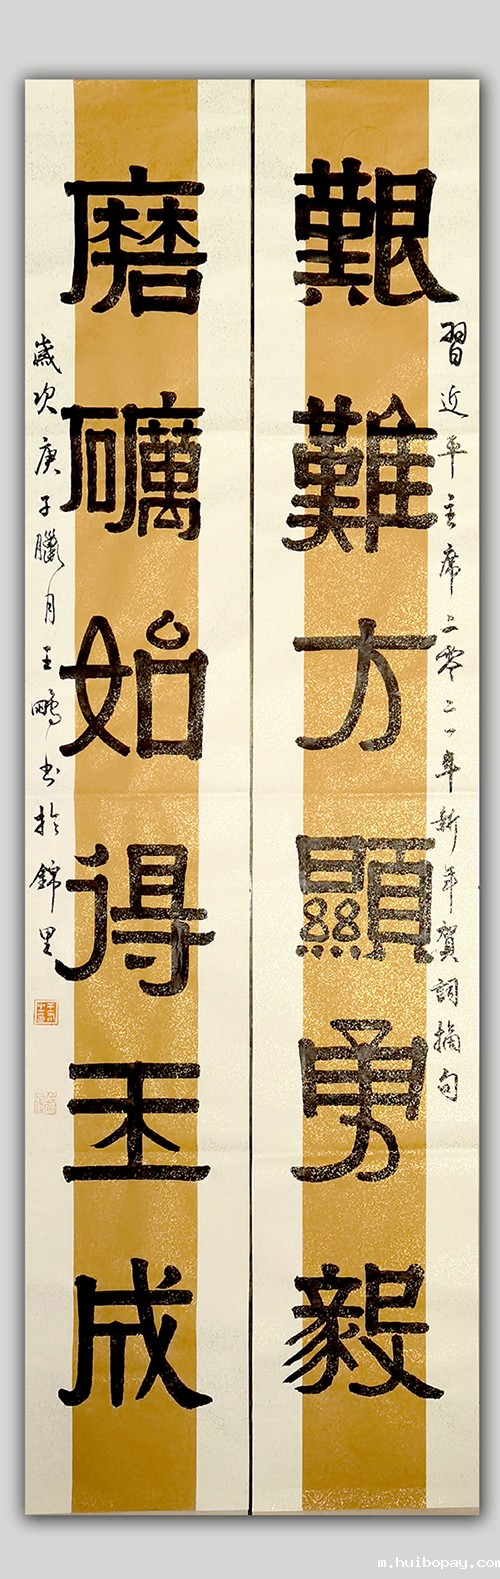 習近平主席二零二一年新年賀詞摘句
艱難方顯勇毅
磨礪始得玉成
歲次庚子臘月王鵬書於錦里
m.huibopay.com